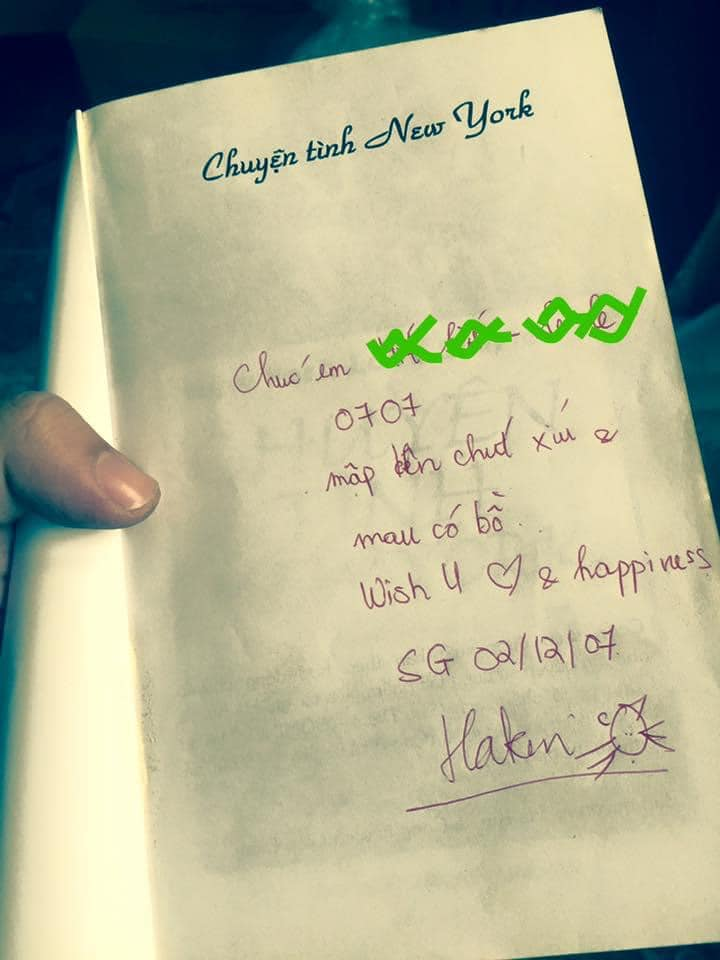 Chuyện tình New York
Chúc em
0707
mập lên chút xíu &
mau có bồ..
Wish U ♡ & happiness
SG 02/12/07
Hakin